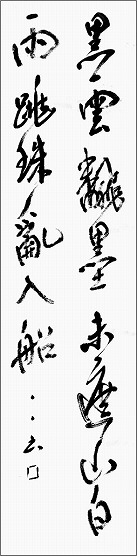 黒雲飜墨未遮山白
雨跳珠乱入船